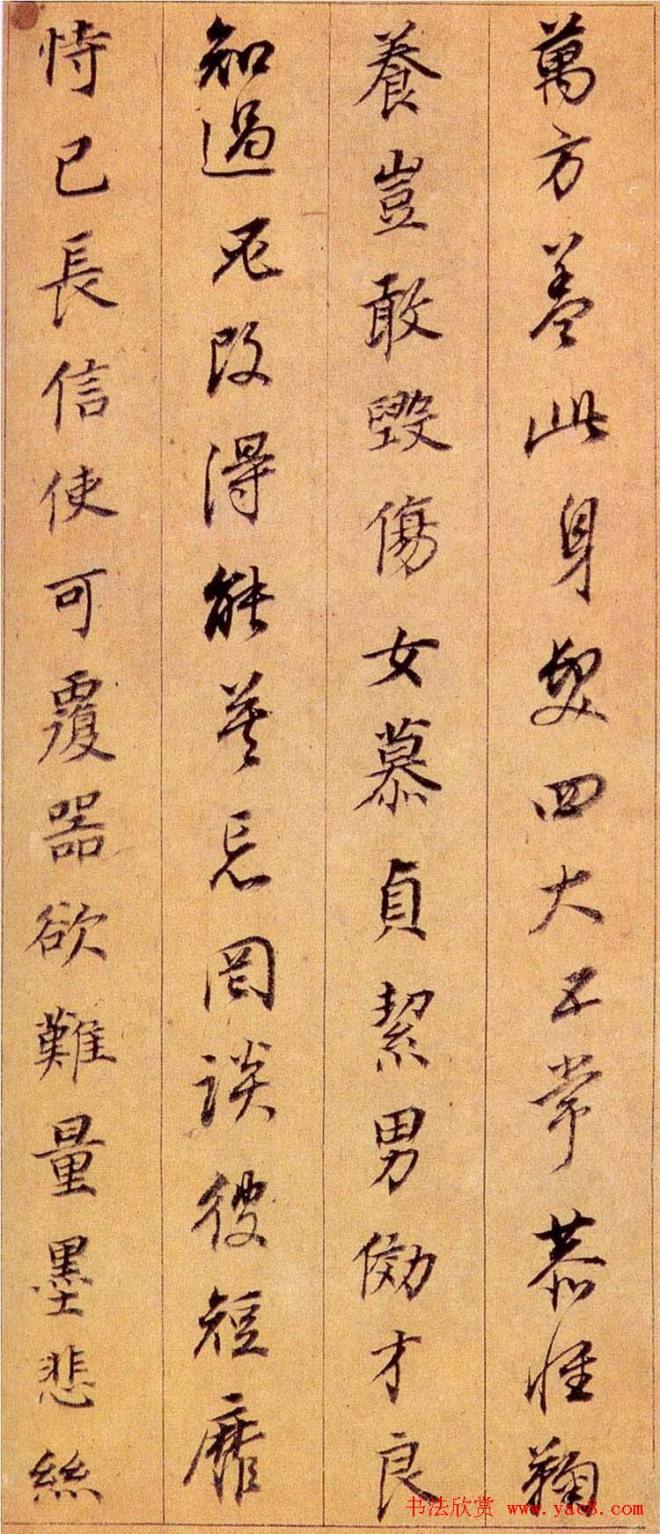 萬方蓋此身髮四大五常恭惟鞠
養豈敢毀傷女慕貞絜男俲才良
知過必改得能莫忘罔談彼短靡
恃己長信使可覆器欲難量墨悲絲
书法欣赏 www.yac8.com